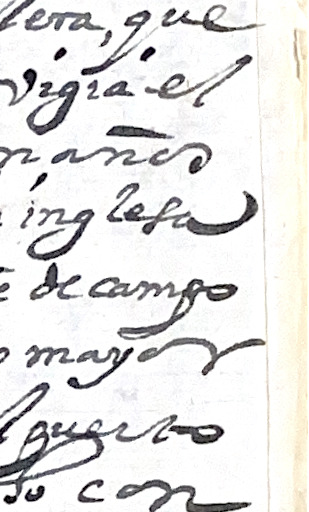 lera, que
vigia el
n años
inglesa
de campo
o mayor
l puerto
con